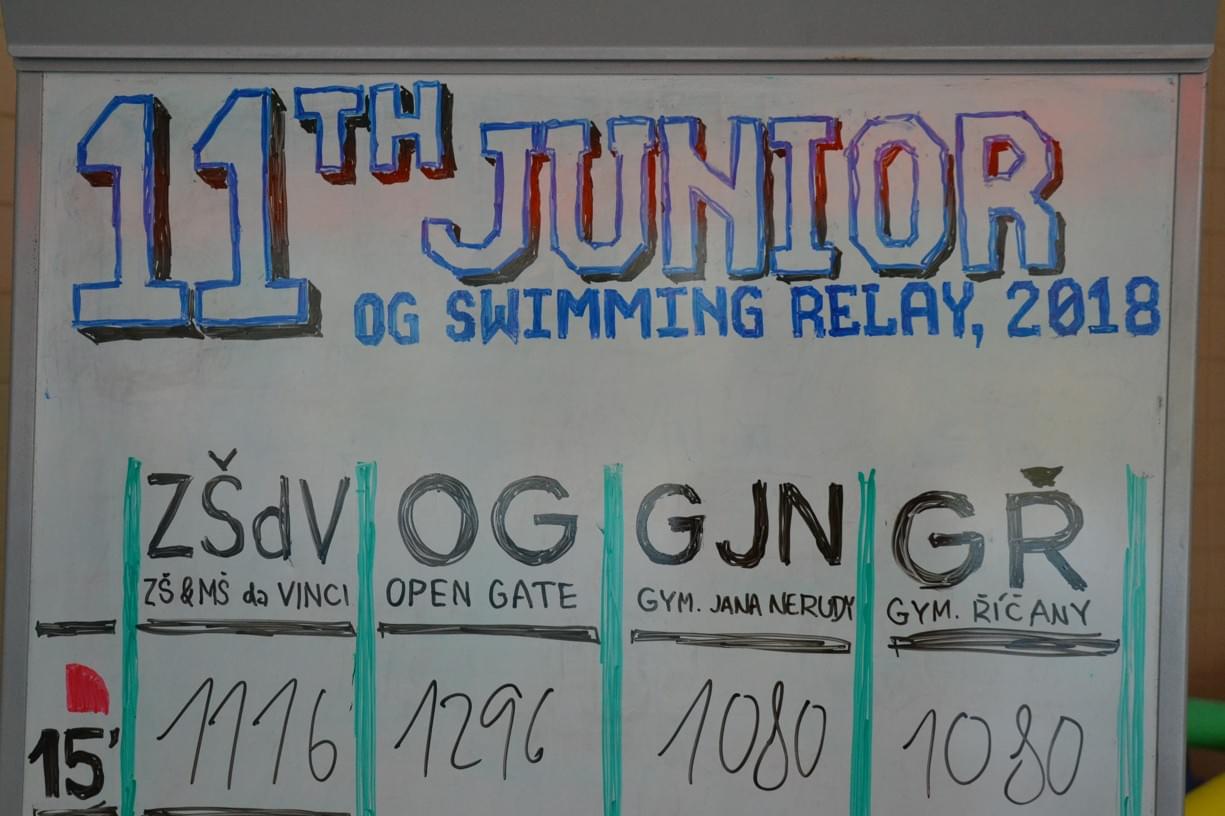 11TH JUNIOR
OG SWIMMING RELAY, 2018
ZŠdV OG GJN GŘ
ZŠ & MŠ da VINCI OPEN GATE GYM. JANA NERUDY GYM. ŘÍČANY
15' 1116 1296 1080 1080